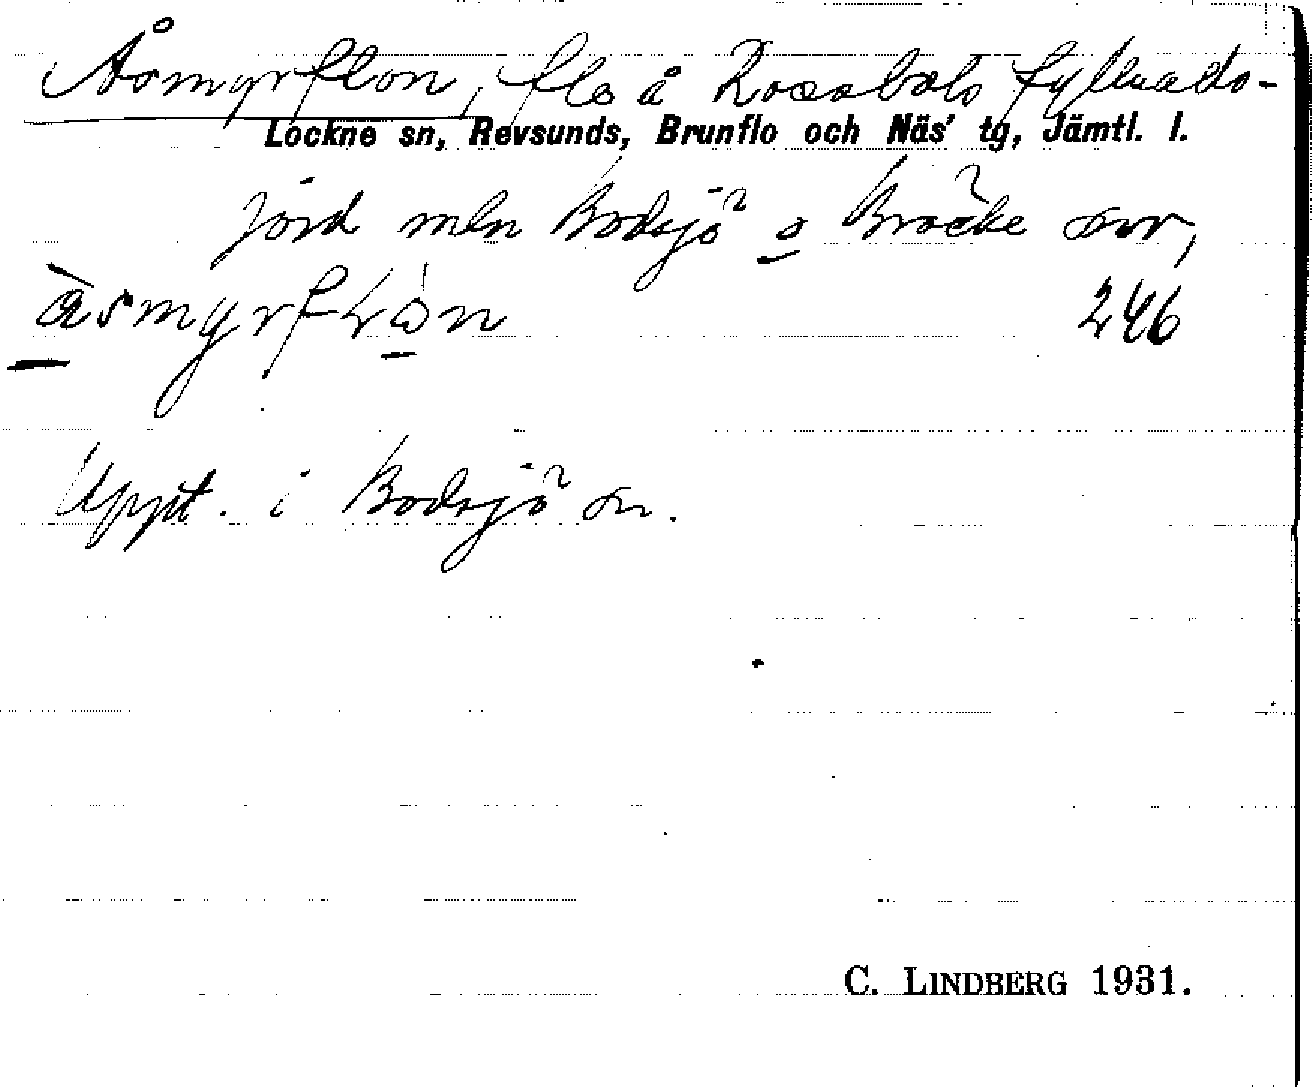 Åsmyrflon, flo å Rossbols fyllnads-
Lockne sn, Revsunds, Brunflo och Näs' tg, Jämtl. l.
jord mln Bodsjö o Bräcke snr,
åsmyrfłon 246
Uppt. i Bodsjö sn.
C. LINDBERG 1931.